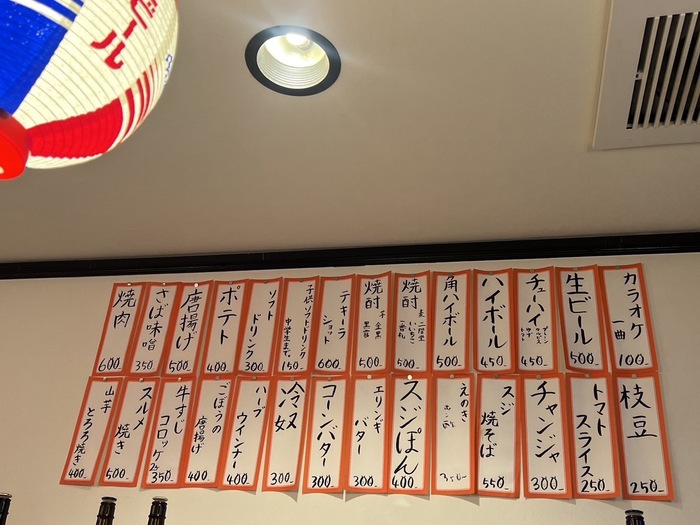 ビール
カラオケ
一曲
100-
生ビール
500-
チューハイ
プレーン
カルピス
ゆず
450-
ハイボール
450-
角ハイボール
500-
焼酎
麦
二階堂
いいちこ
一番札
500-
焼酎
芋
金黒
黒霧
500-
テキーラ
ショット
600-
子供ソフトドリンク
中学生まで。
150-
ソフト
ドリンク
300-
ポテト
400-
唐揚げ
500-
さば味噌
350-
焼肉
600-
枝豆
250-
トマト
スライス
250-
チャンジャ
300-
スジ
焼そば
550-
えのき
350-
スジぽん
400-
エリンギ
バター
300-
コーンバター
300-
冷奴
300-
ハーブ
ウインナー
400-
ごぼうの
唐揚げ
400-
牛すじ
コロッケ
2ケ
350-
スルメ
焼き
500-
山芋
とろろ焼き
400-